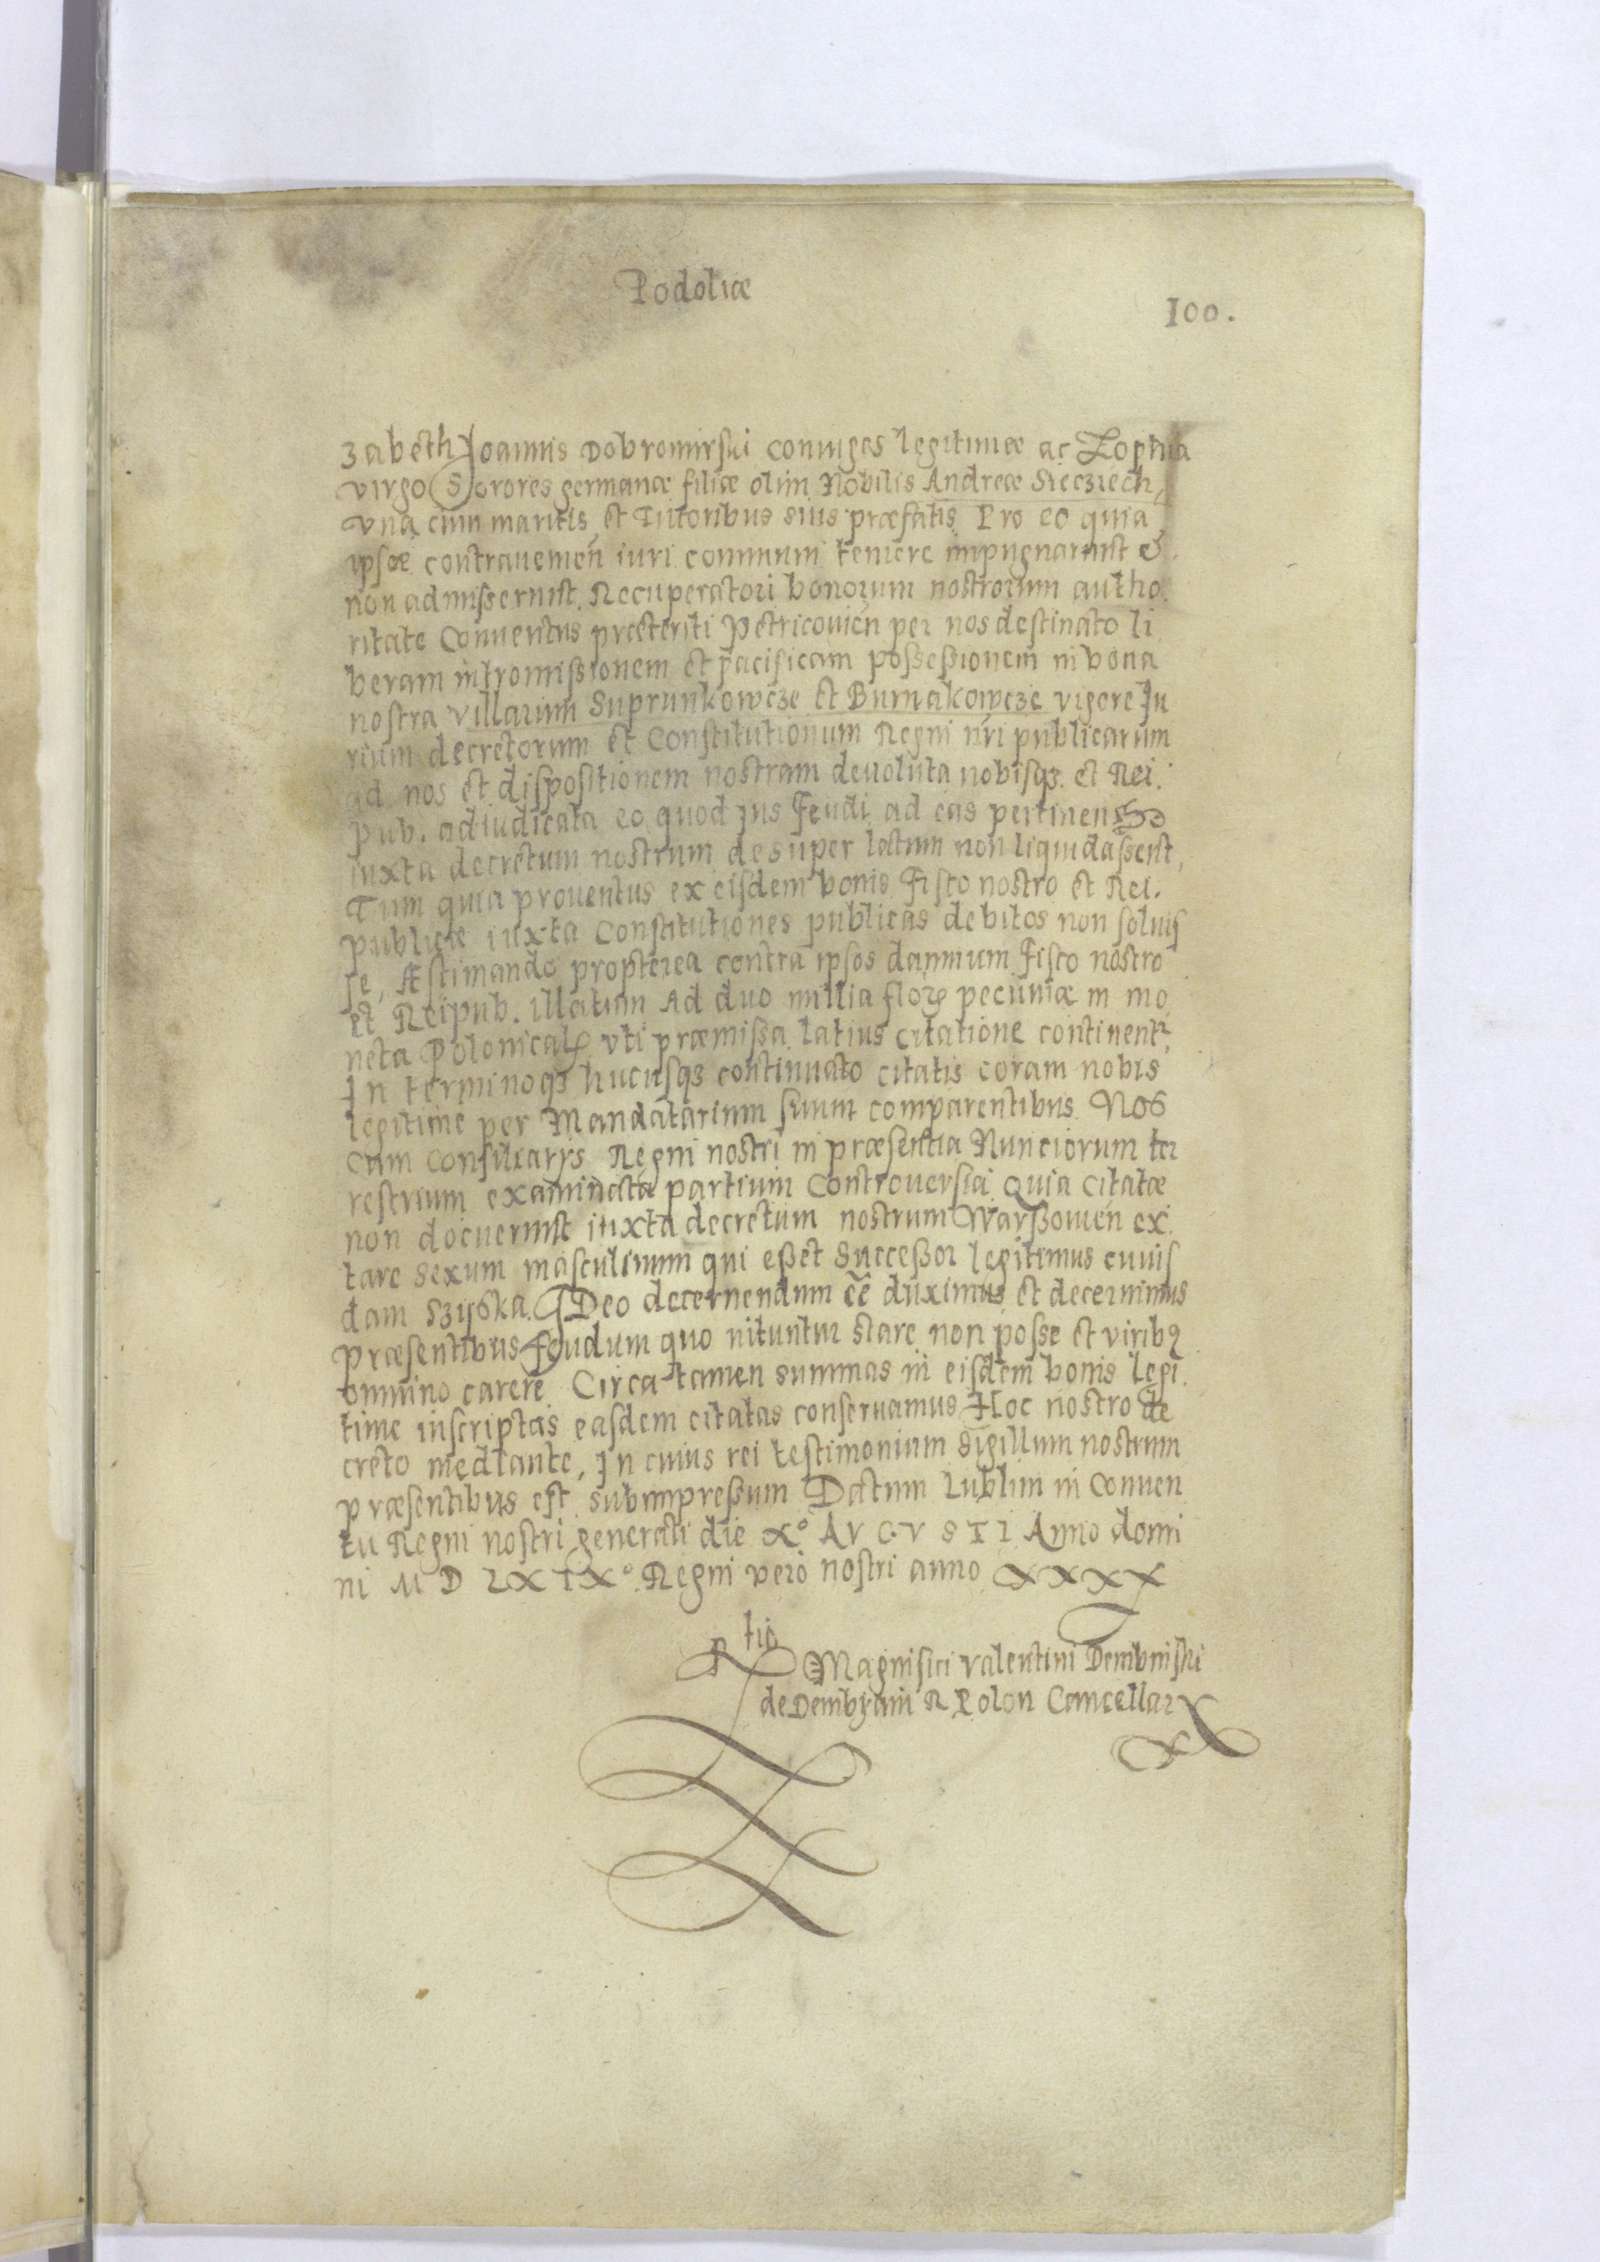 Podoliæ
100.
zabeth Joannis Dobromirski coniuges legitimæ ac Zophia
virgo Sorores germanæ filiæ olim Nobilis Andreæ Siecziech,
vna cum maritis et Tutoribus suis præfatis Pro eo quia
ipsæ contrauemen̄ iuri communi temere impugnarunt &
non admisserunt Recuperatori bonorum nostrorum autho
ritate Conuentus præteriti Petricouien̄ per nos destinato li
beram intromissionem et pacificam possessionem in bona
nostra villarum Suprunkowcze et Burnakowcze vigore Ju
rium decretorum et Constitutionum Regni nr̄i publicarum
ad nos et dispositionem nostram deuoluta nobisqꝫ et Rei.
pub. adiudicata eo quod jus Feudi ad eas pertinens
iuxta decretum nostrum desuper latum non liquidassent,
Tum quia prouentus ex eisdem bonis Fisco nostro et Rei.
publicæ iuxta Constitutiones publicas debitos non soluis
se, Æstimando propterea contra ipsos damnum Fisco nostro
et Reipub. illatum Ad duo millia florꝫ pecuniæ in mo
neta Polonical, vti præmissa latius citatione continent̄,
In terminoqꝫ hucusqꝫ continuato citatis coram nobis
legitime per Mandatarium suum comparentibus Nos
cum Consiliarijs Regni nostri in præsentia Nunciorum ter
restrium examinata partium Controuersia Quia Citatæ
non docuerunt iuxta decretum nostrum Warssouien̄ ex
tare sexum masculinum qui esset Successor legitimus cuius
dam Szyska. JDeo decernendum ēē duximus et decernimus
præsentibus feudum quo nituntur stare non posse et viribꝫ
omnino carere Circa tamen summas in eisdem bonis legi
time inscriptas easdem citatas conseruamus Hoc nostro de
creto mediante, In cuius rei testimonium Sigillum nostrum
præsentibus est subimpressum Datum Lublini in Conuen
tu Regni nostri generali die X° AVGVSTI Anno domi
ni MDLXIX° Regni vero nostri anno XXXX
Rtio
Magnifici Valentini Dembinski
de Dembyani R Polon Cancellar